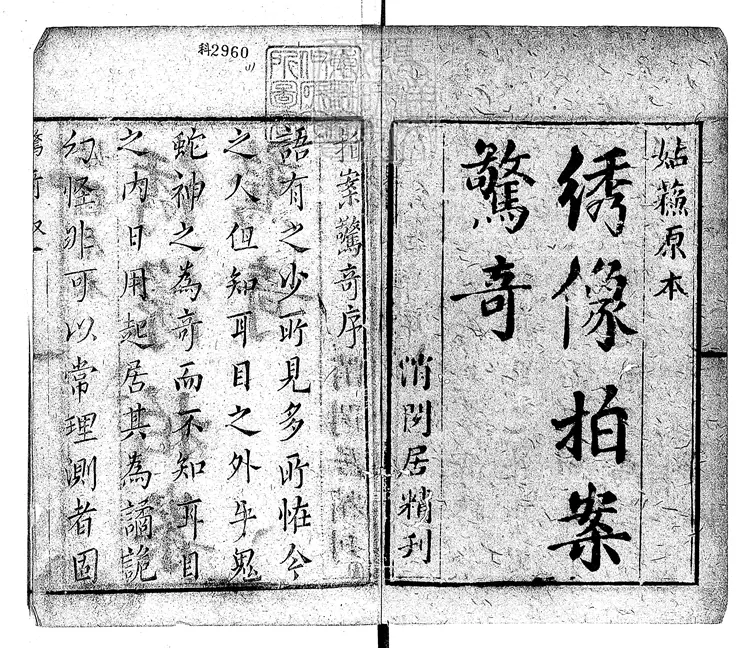 科2960
姑蘓原本
綉像拍案
驚奇
消閑居精刋
拍案驚奇序
語有之少所見多所怪今
之人但知耳目之外牛鬼
蛇神之為奇而不知耳目
之內日用起居其為譎詭
幻怪非可以常理測者固